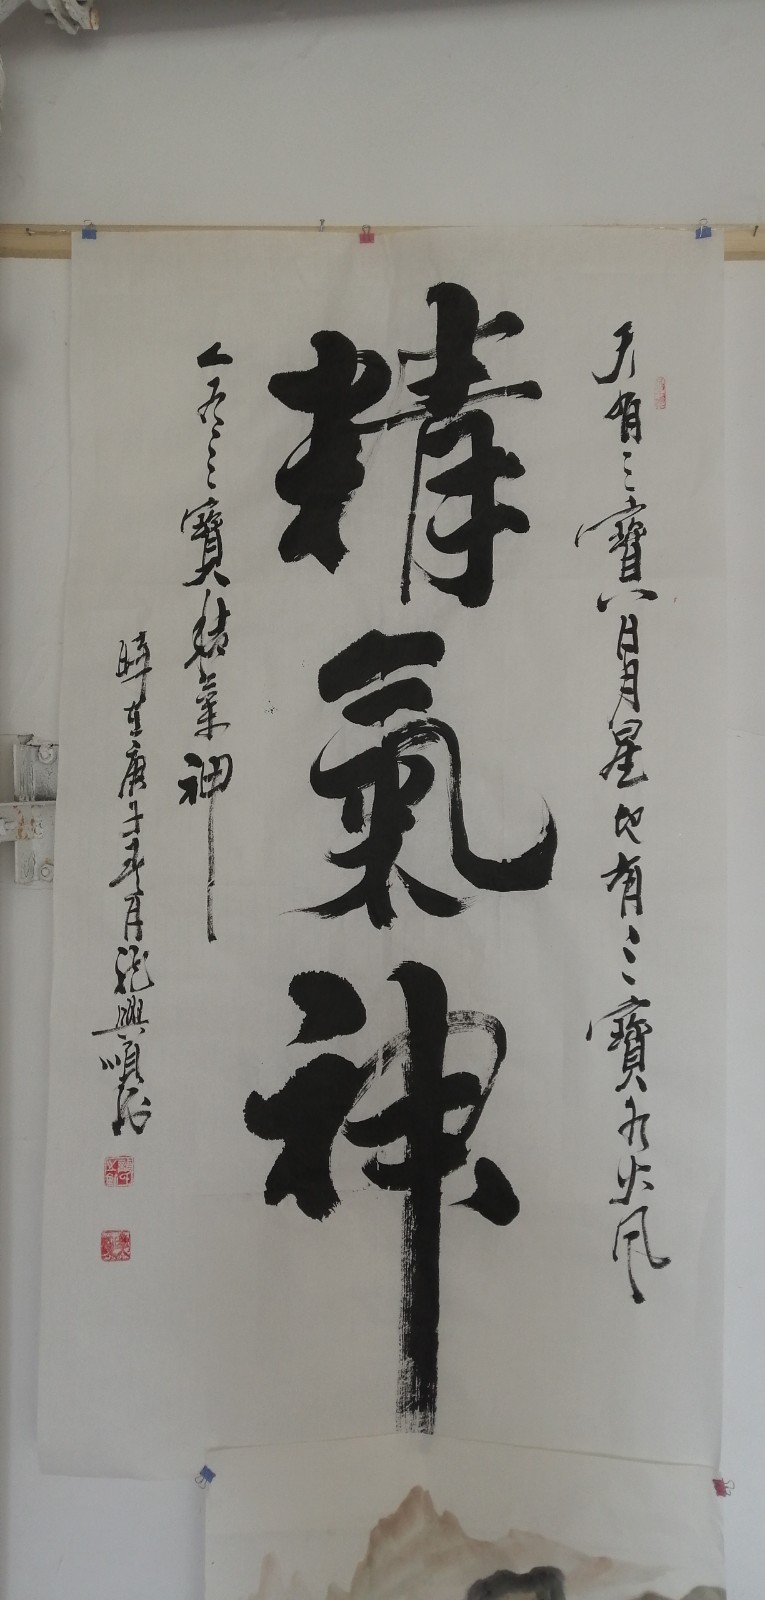 天有三寶日月星地有三寶水火風
精氣神
人有三寶精氣神
時在庚子春月龍興順書